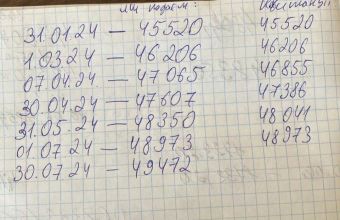 мы подаем: квитанции
31.01.24 — 45520 45520
1.03.24 — 46206 46206
07.04.24 — 47065 46855
30.04.24 — 47607 47386
31.05.24 — 48350 48041
01.07.24 — 48973 48973
30.07.24 — 49472